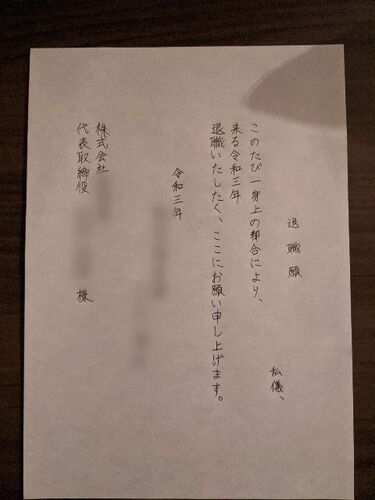 退職願
私儀、
このたび一身上の都合により、
来る令和三年
退職いたしたく、ここにお願い申し上げます。
令和三年
株式会社
代表取締役 様